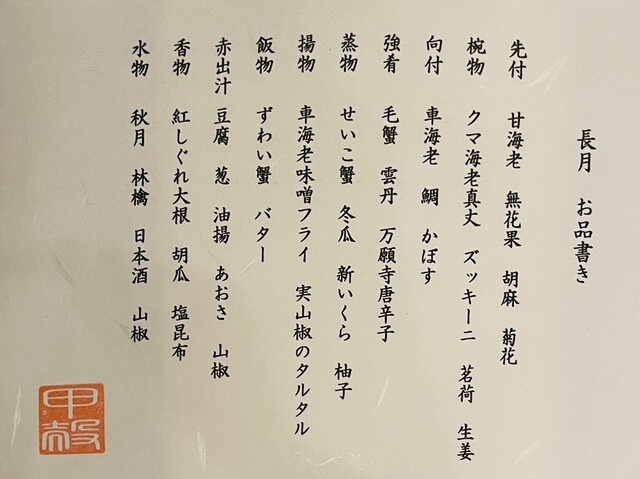 長月 お品書き
先付 甘海老 無花果 胡麻 菊花
椀物 クマ海老真丈 ズッキーニ 茗荷 生姜
向付 車海老 鯛 かぼす
強肴 毛蟹 雲丹 万願寺唐辛子
蒸物 せいこ蟹 冬瓜 新いくら 柚子
揚物 車海老味噌フライ 実山椒のタルタル
飯物 ずわい蟹 バター
赤出汁 豆腐 葱 油揚 あおさ 山椒
香物 紅しぐれ大根 胡瓜 塩昆布
水物 秋月 林檎 日本酒 山椒
甲殻